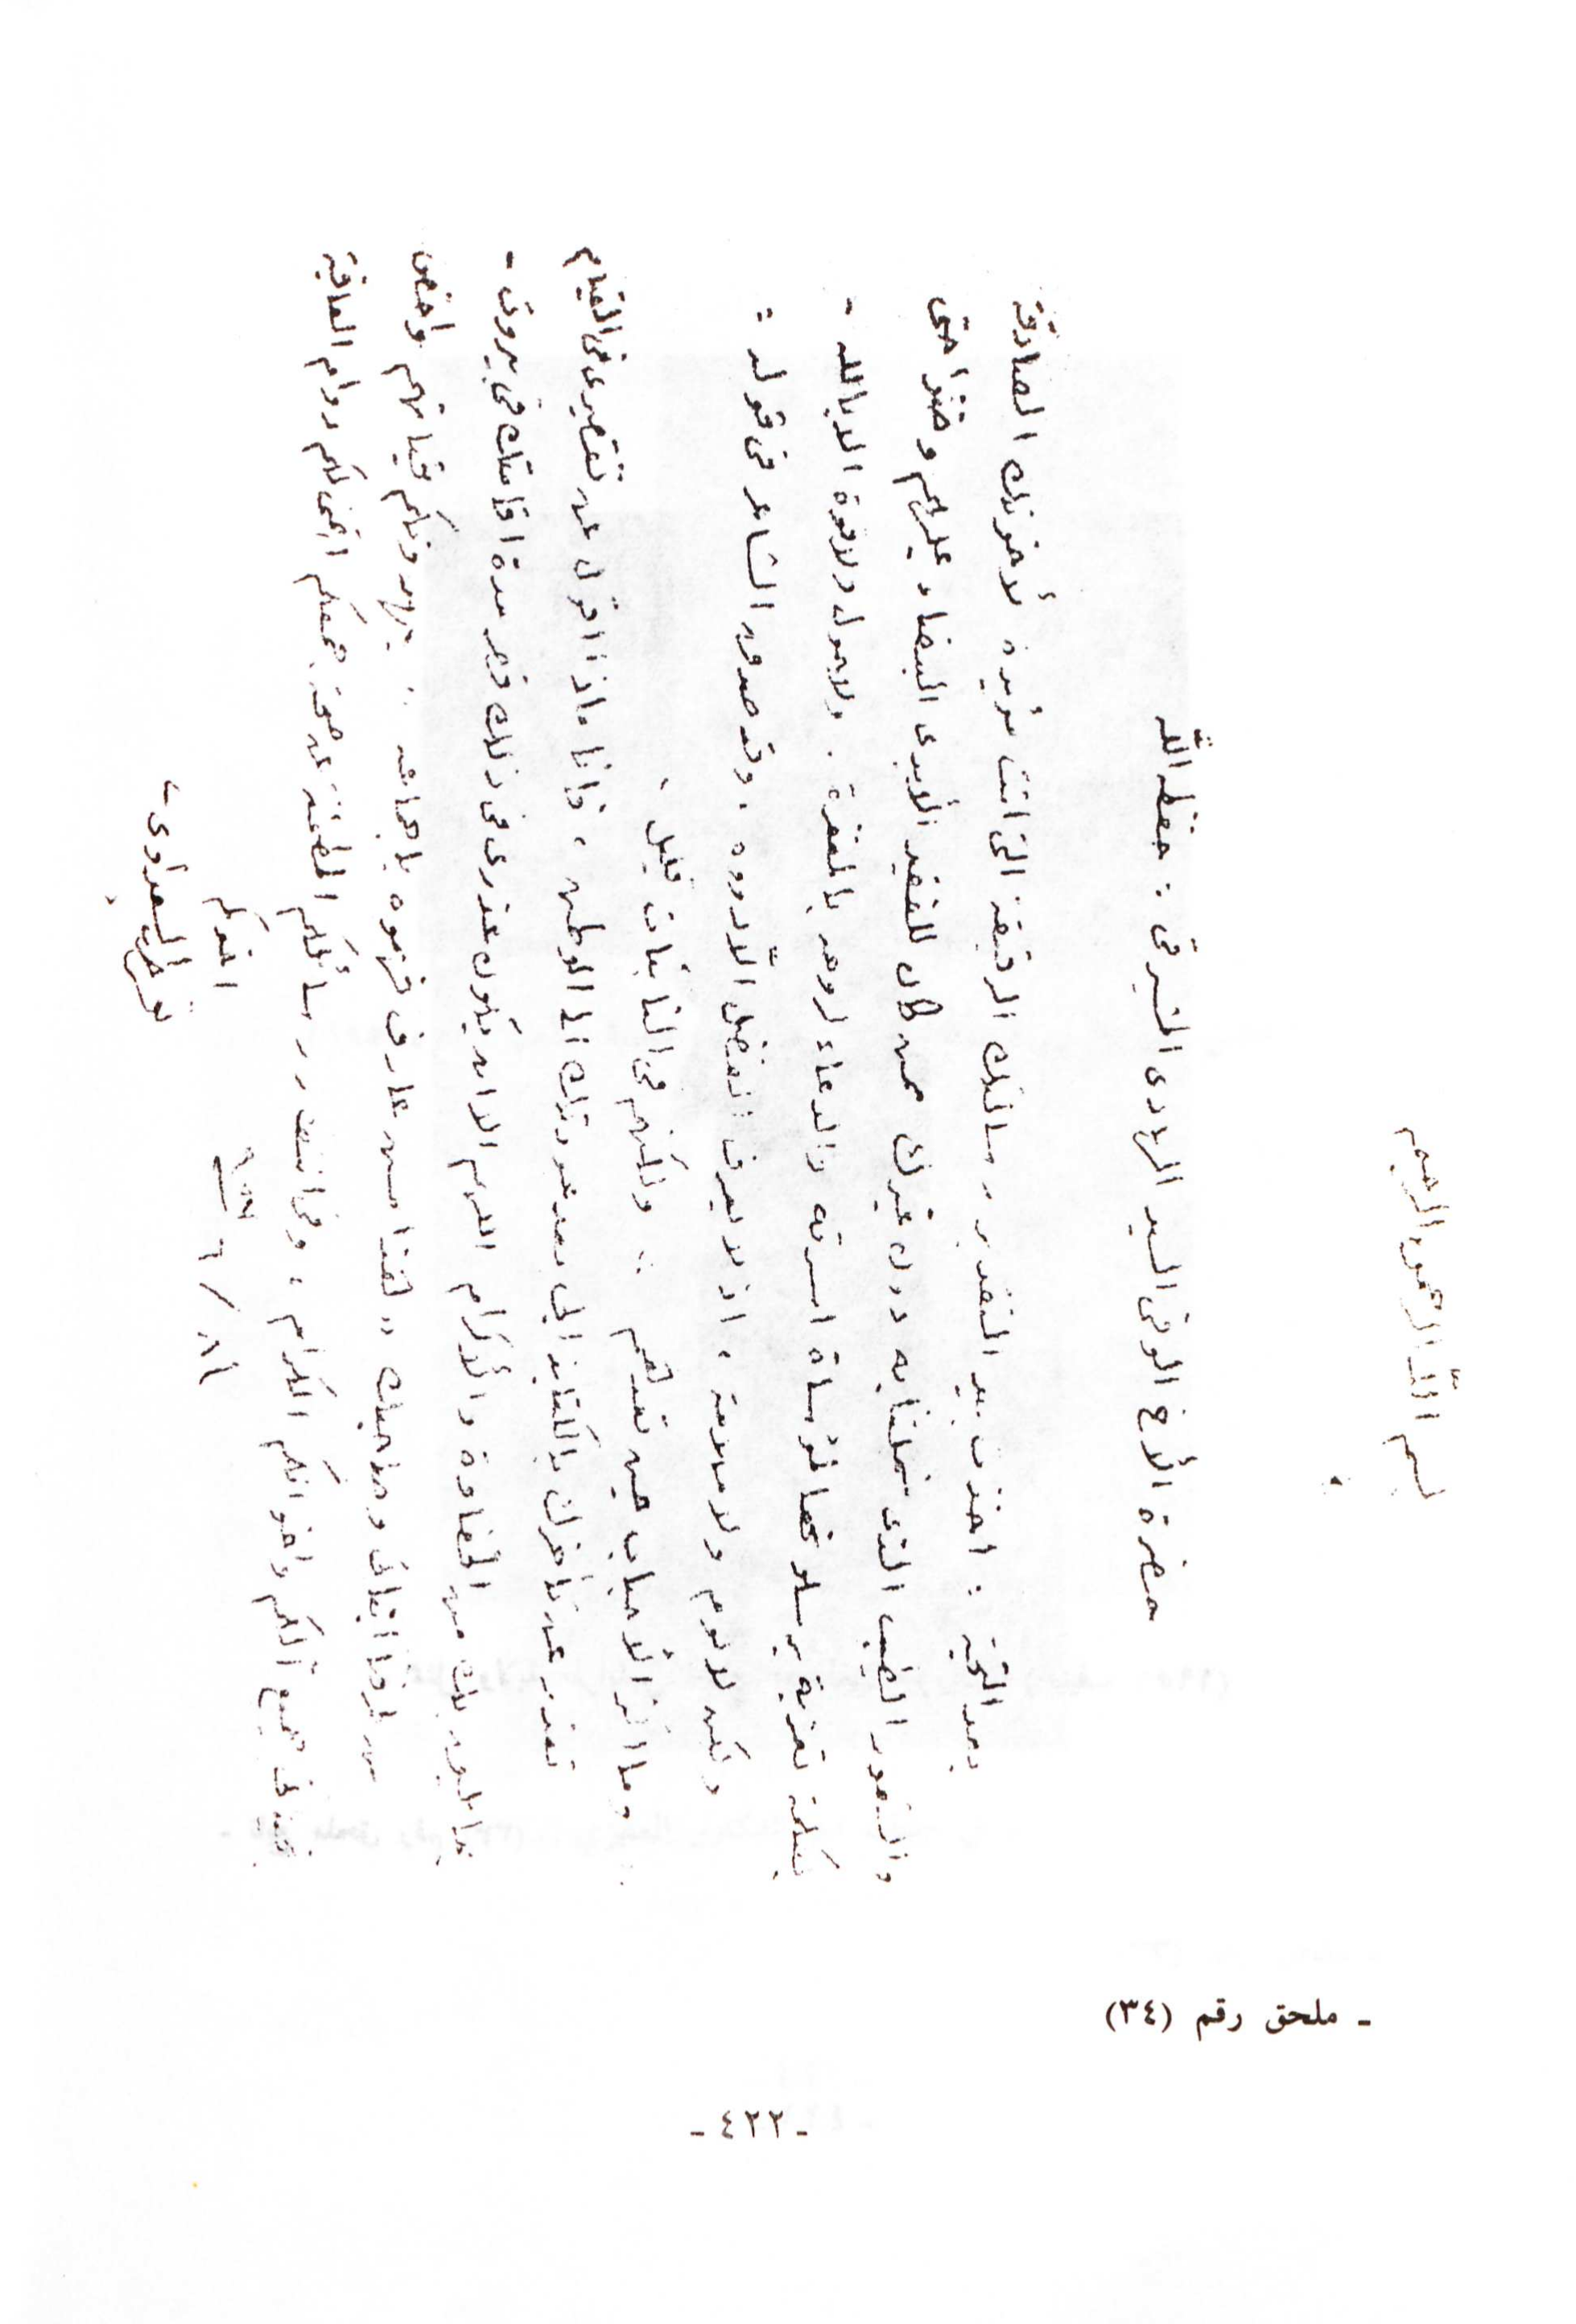 بسم الله الرحمن الرحيم
حضرة الأخ الوفي السيد الهادي المشيرقي : حفظه الله
بعد التحية : اخذت بيد التقدير رسالتك الرقيقة التي اتت مؤيدة لأخوتك الصادقة
والشعور الطيب الذي تملنا به دون غيرك ممن كان للفقيد الأيدي البيضاء عليهم وضنوا حتى
بكلمة تعزية يرسلونها لمؤساة اسرته والدعاء لروحه بالمغفرة . ولاحول ولاقوة الا بالله -
ولكن لا لوم ولا ملامة ، اذ لا يعرف الفضل الا ذووه ، وقد صدق الشاعر في قوله :
وما اكثر الأحباب حين تعدهم .. ولكنهم في النائبات قليل .
تعتذر عن تأخرك بالكتابة الي بعد عودتك الى الوطن ، فانا ماذا اقول عن تقصيري في القيام
بما يليق بك من الحفاوة والأكرام اللهم الا ان يكون عذري في ذلك قصر مدة اقامتك في بيروت -
قهوة عارف
وفي جميع آلكم واخوانكم الكرام ، وفي انتظار رسائلكم المطمئنة عن صحة جميعكم اتمنى لكم دوام العافية
اخوكم
٢٨ / ٦
- ملحق رقم (٣٤)
- ٤٢٢ -